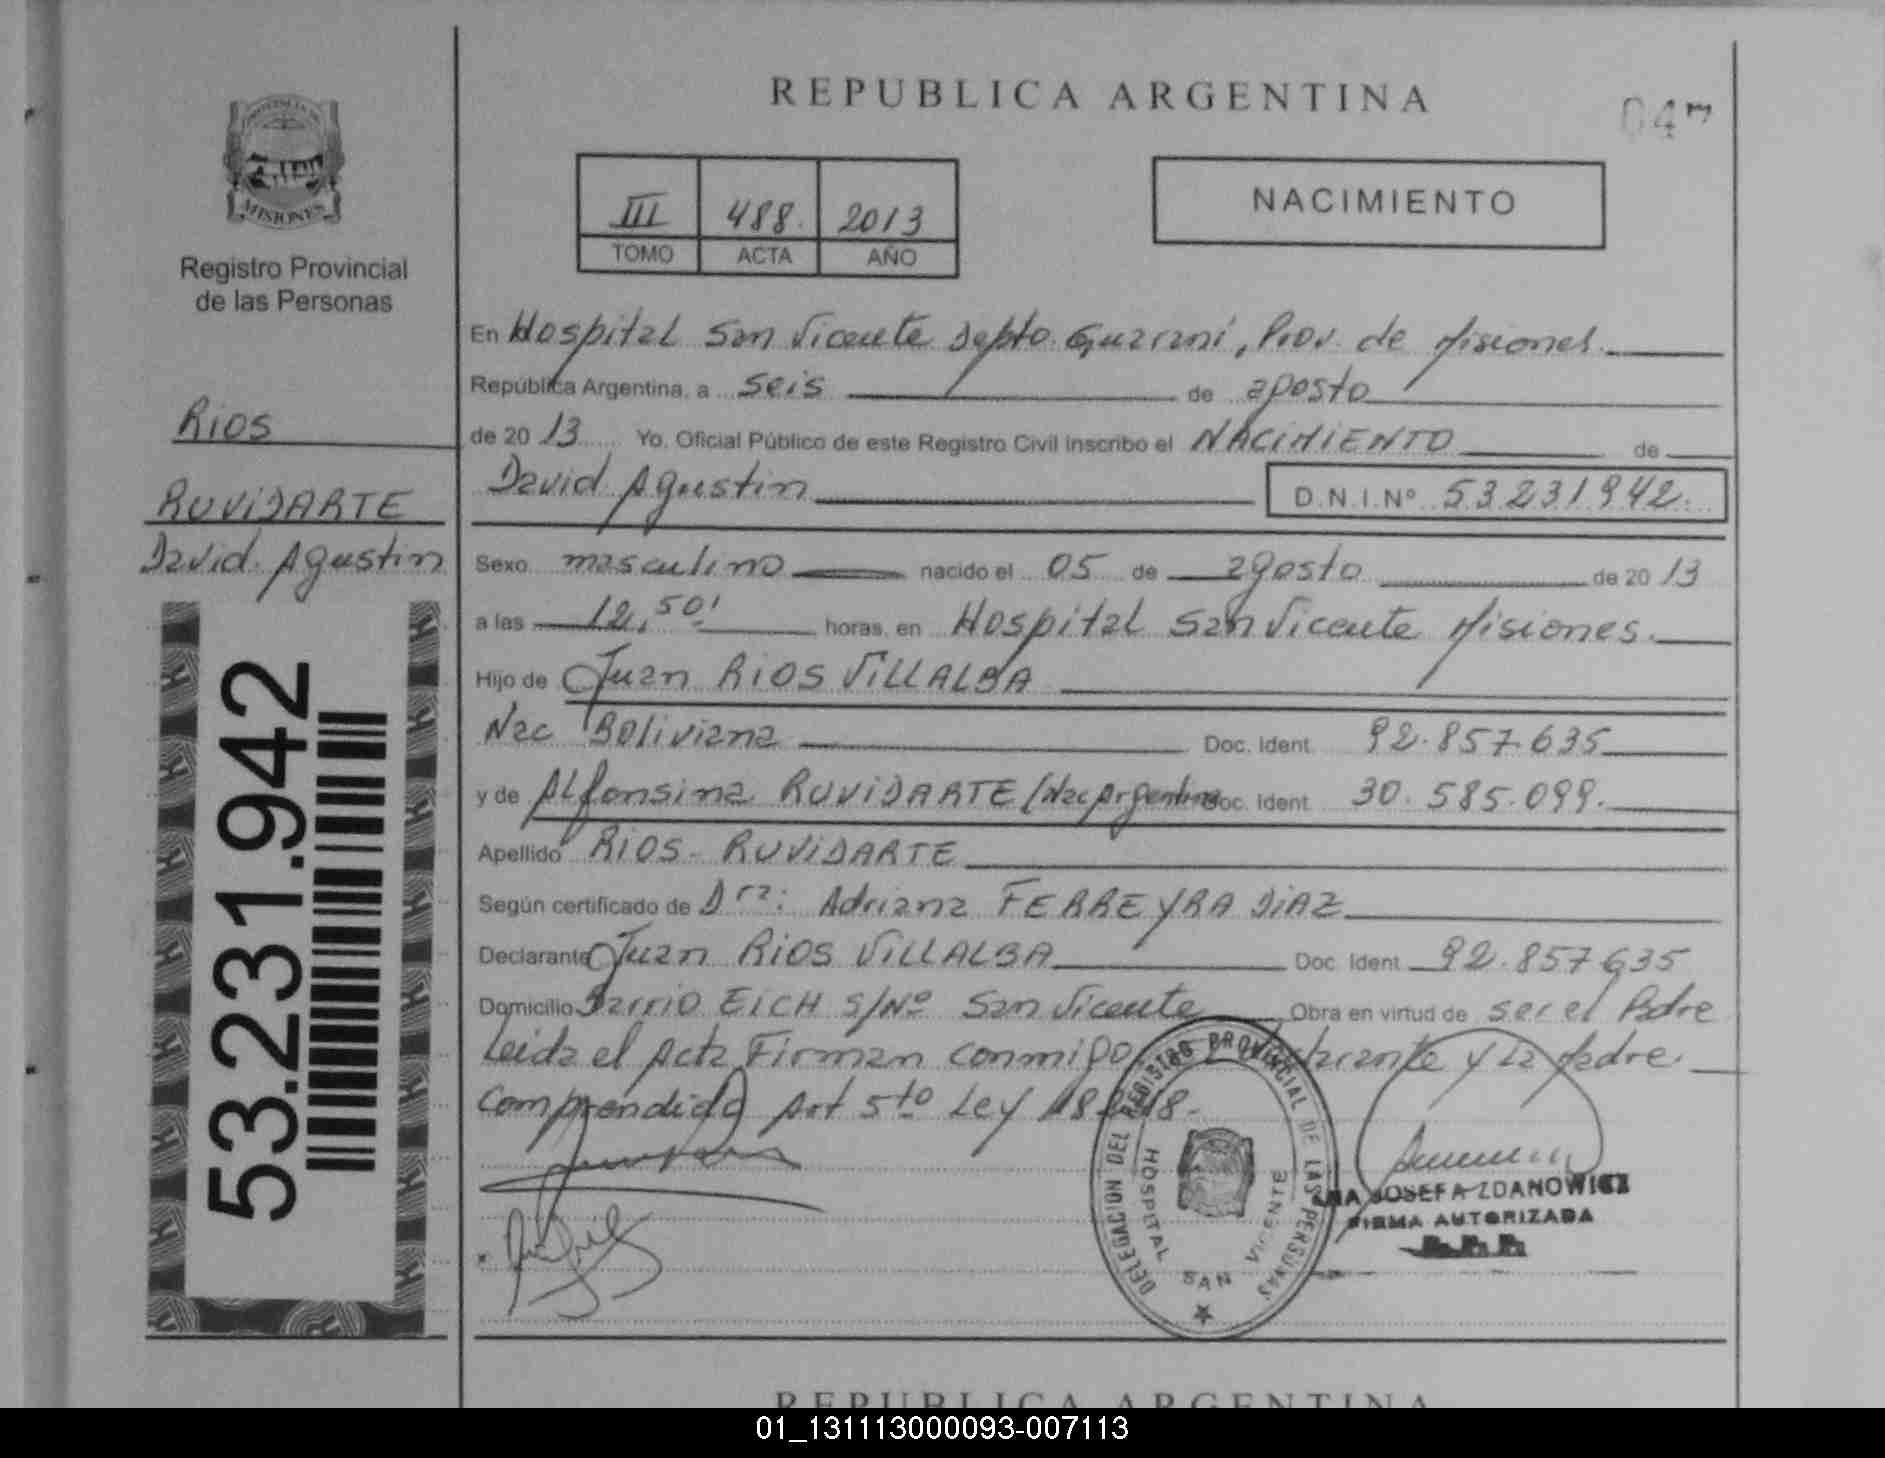 REPUBLICA ARGENTINA
047
PROVINCIA DE
MISIONES
Registro Provincial
de las Personas
III 488. 2013
TOMO ACTA AÑO
NACIMIENTO
En Hospital San Vicente Depto. Guaraní, Prov. de Misiones.
República Argentina, a seis de agosto
de 20 13 Yo, Oficial Público de este Registro Civil inscribo el NACIMIENTO de
David Agustin D.N.I.Nº 53.231.942.
Rios
RUVIDARTE
David Agustin
53.231.942
Sexo masculino nacido el 05 de agosto de 20 13
a las 12,50' horas, en Hospital San Vicente Misiones.
Hijo de Juan RIOS VILLALBA
Nac Boliviana Doc. Ident. 92.857.635
y de Alfonsina RUVIDARTE /Nac Argentina Doc. Ident. 30.585.099.
Apellido RIOS - RUVIDARTE
Según certificado de Dra: Adriana FERREYRA DIAZ
Declarante Juan RIOS VILLALBA Doc. Ident. 92.857.635
Domicilio Barrio EICH S/Nº San Vicente Obra en virtud de ser el Padre
Leida el Acta Firman conmigo y la Madre.
Comprendido Art 5to Ley
DELEGACION DEL REGISTRO PROVINCIAL DE LAS PERSONAS
HOSPITAL SAN VICENTE
ANA JOSEFA ZDANOWICZ
FIRMA AUTORIZADA
REPUBLICA ARGENTINA
01_131113000093-007113